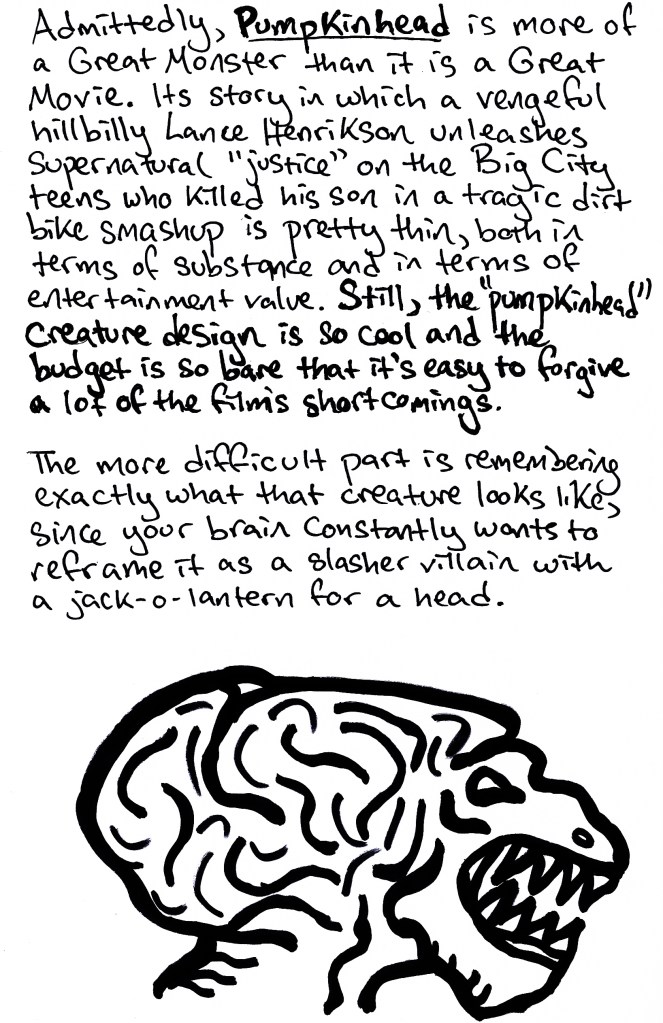 Admittedly, Pumpkinhead is more of
a Great Monster than it is a Great
Movie. Its story in which a vengeful
hillbilly Lance Henrikson unleashes
supernatural "justice" on the Big City
teens who killed his son in a tragic dirt
bike smashup is pretty thin, both in
terms of substance and in terms of
entertainment value. Still, the "pumpkinhead"
creature design is so cool and the
budget is so bare that it's easy to forgive
a lot of the film's shortcomings.
The more difficult part is remembering
exactly what that creature looks like,
since your brain constantly wants to
reframe it as a slasher villain with
a jack-o-lantern for a head.